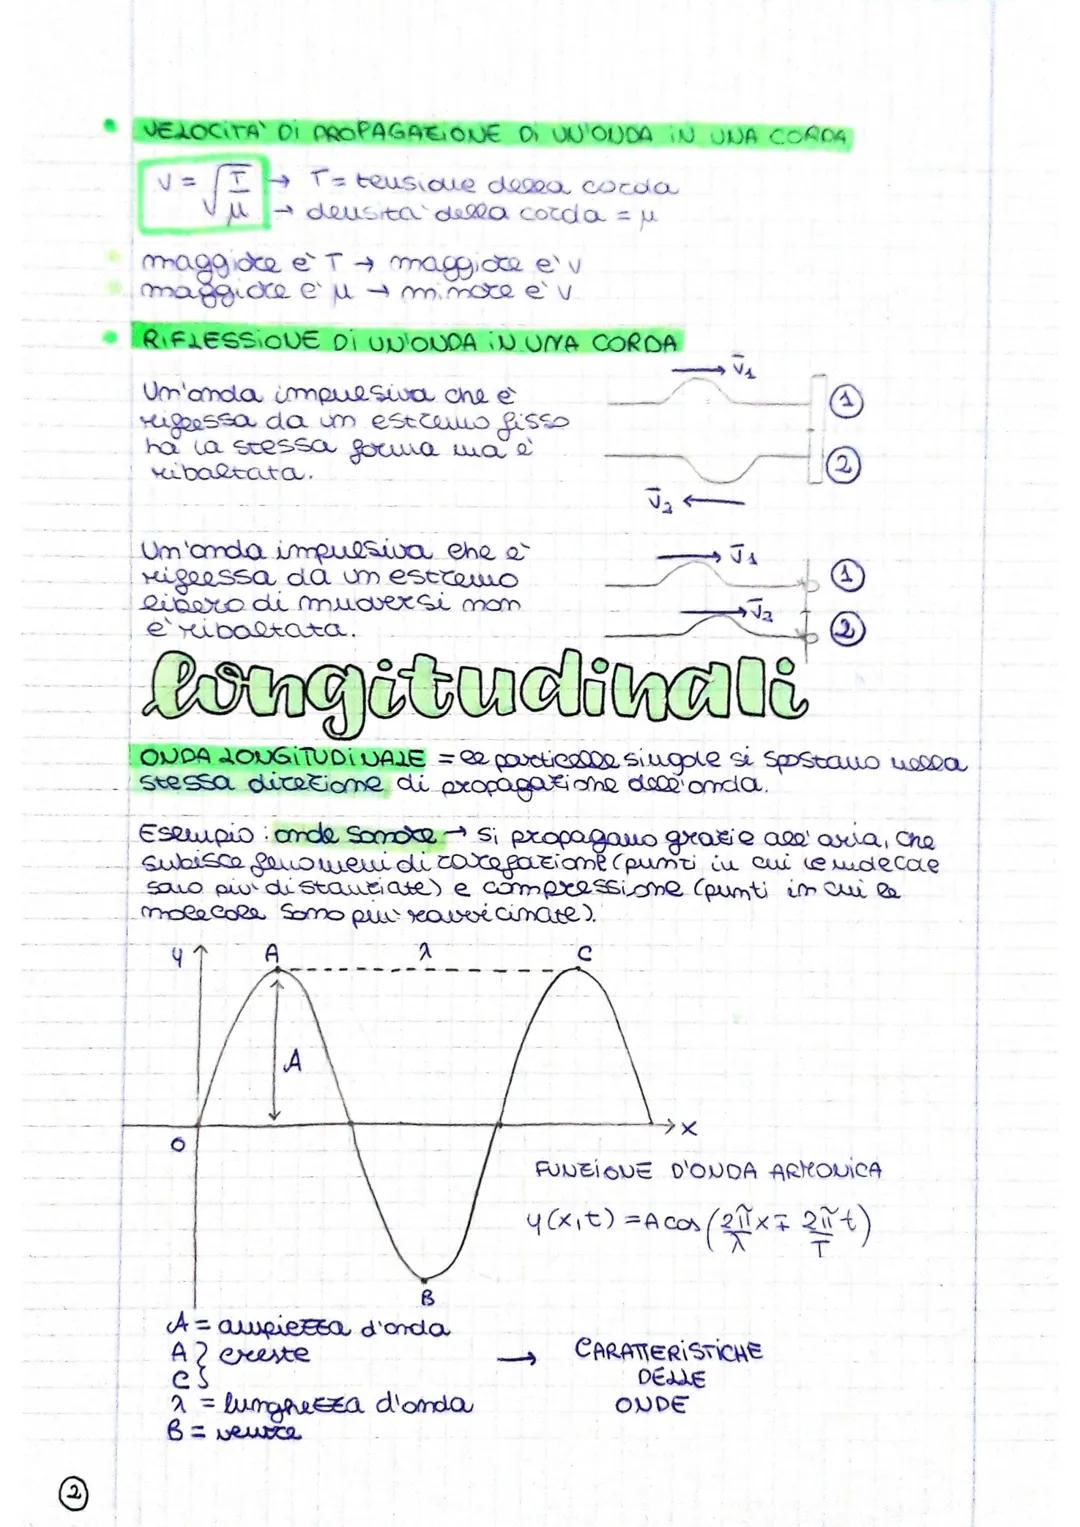 VELOCITA' DI PROPAGAZIONE DI UN'ONDA IN UNA CORDA
V = √(T/μ) → T = tensione della corda
→ densita' della corda = μ
maggiore è T → maggiore e' v
maggiore e' μ → minore e' v
RIFLESSIONE DI UN'ONDA IN UNA CORDA
Un'onda impulsiva che è
riflessa da un estremo fisso
ha la stessa forma ma è
ribaltata.
V₁
1
2
V₂
Un'onda impulsiva che e'
riflessa da un estremo
libero di muoversi non
e' ribaltata.
V₁
1
V₂
2
longitudinali
ONDA LONGITUDINALE = le particelle singole si spostano nella
stessa direzione di propagazione dell'onda.
Esempio: onde sonore → si propagano grazie all'aria, che
subisce fenomeni di rarefazione (punti in cui le molecole
sono piu' distanziate) e compressione (punti in cui le
molecole sono piu' ravvicinate).
y A λ C
A
O
x
FUNZIONE D'ONDA ARMONICA
y(x,t) = A cos (2π/λ x ∓ 2π/T t)
B
A = ampiezza d'onda
A } creste
C
λ = lunghezza d'onda
B = ventre
→ CARATTERISTICHE
DELLE
ONDE
2